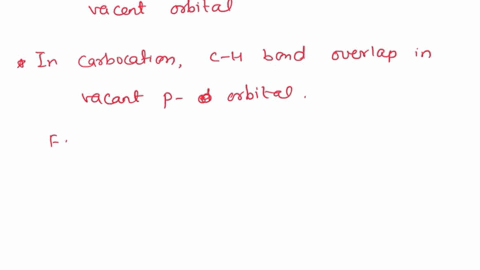 vacent orbital
* In carbocation, C-H bond overlap in
vacant p- orbital.
E.